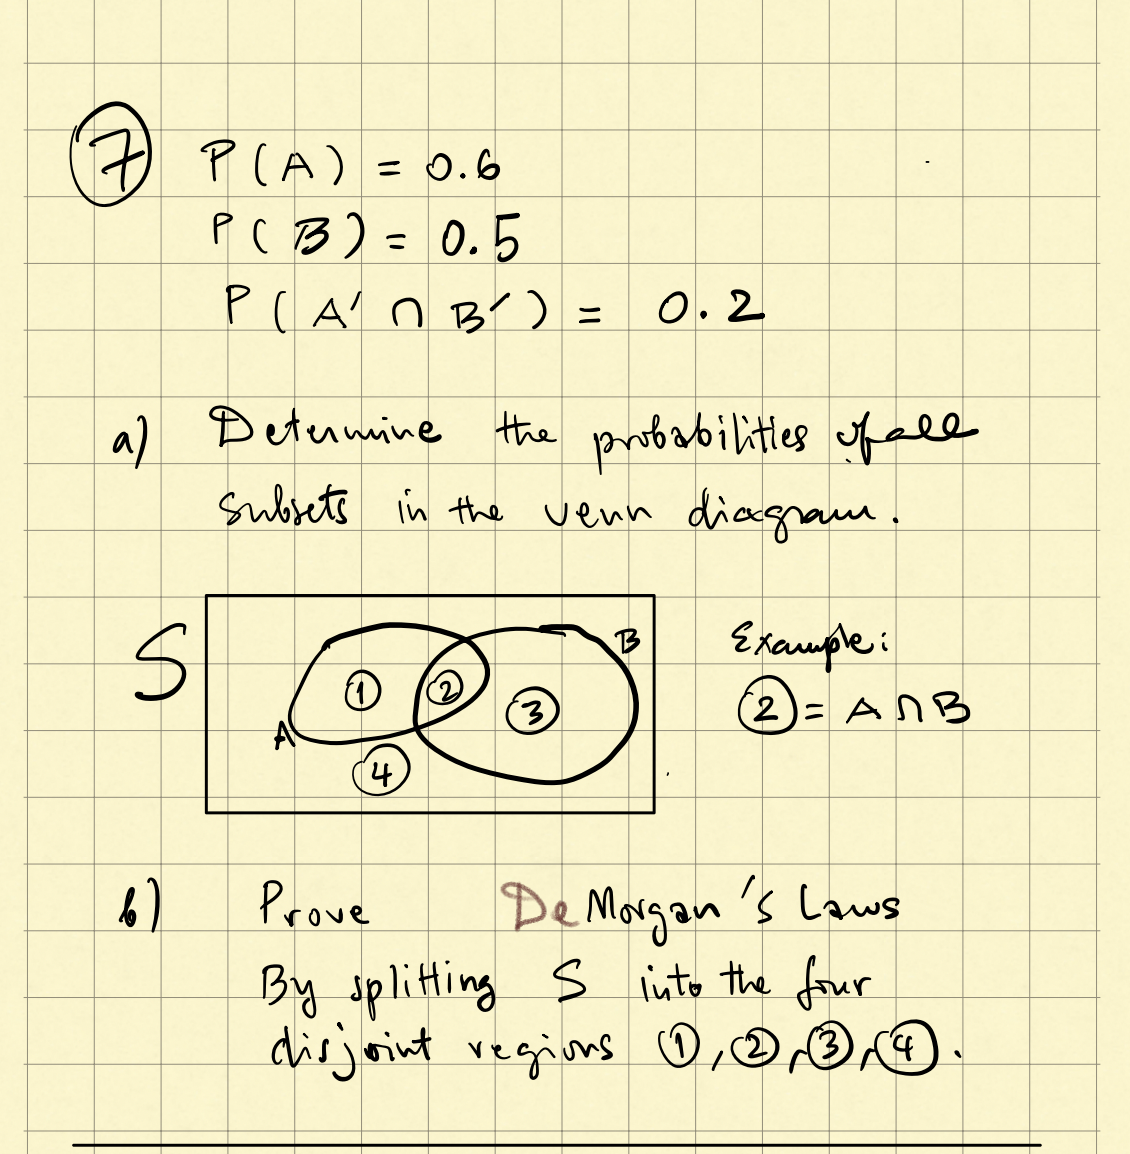 7 P(A) = 0.6
P(B) = 0.5
P(A′ ∩ B′) = 0.2
a) Determine the probabilities of all
subsets in the venn diagram.
S
B
Example:
① ② ③
② = A ∩ B
A
④
b) Prove DeMorgan's Laws
By splitting S into the four
disjoint regions ①, ②, ③, ④.